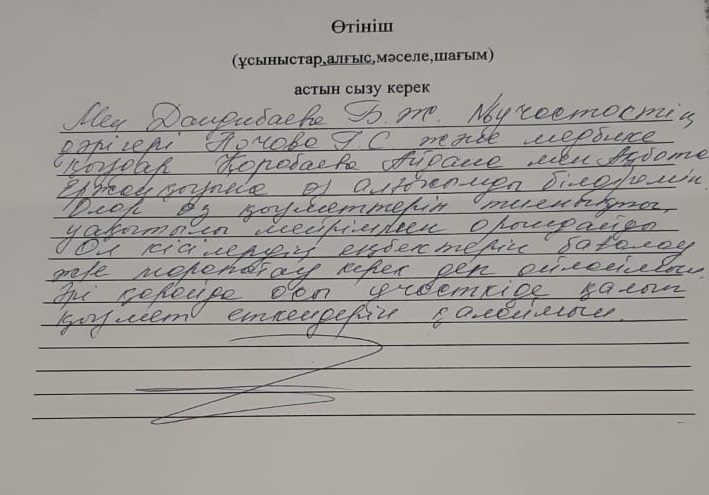 Өтініш
(ұсыныстар,алғыс,мәселе,шағым)
астын сызу керек
Мен Дандибаева Б.Ж. участостің
дәрігері Г.С. және медбике
қыздар Қоробаева Айдана мен Ақбота
Ержанқызына өз алғысымды білдіремін.
Олар өз қызметтерін тиянақты,
уақытылы мейіріммен орындайды
Ол кісілердің еңбектерін бағалау
және марапатау керек деп ойлаймын.
Әрі қарайда осы участкіде қалып
қызмет еткендерін қалаймын.